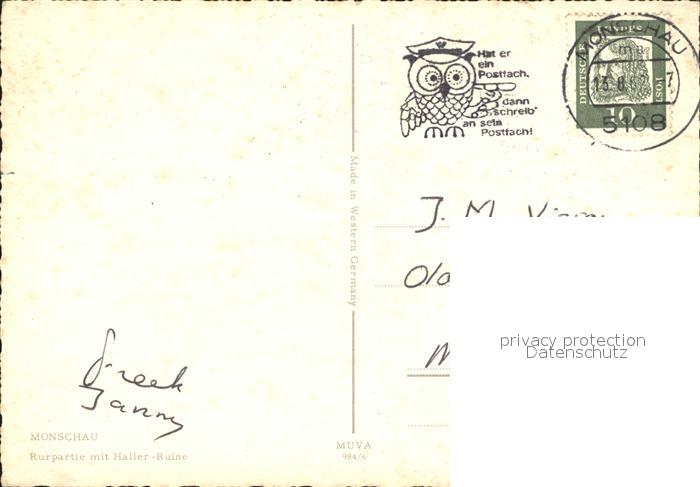 Hat er
ein
Postfach,
dann
schreib'
an sein
Postfach!
MONSCHAU
ma
5108
DEUTSCHE
POST
10
Made in Western Germany
J. M.
privacy protection
Datenschutz
Janny
MONSCHAU
Rurpartie mit Haller-Ruine
MUVA
984/6